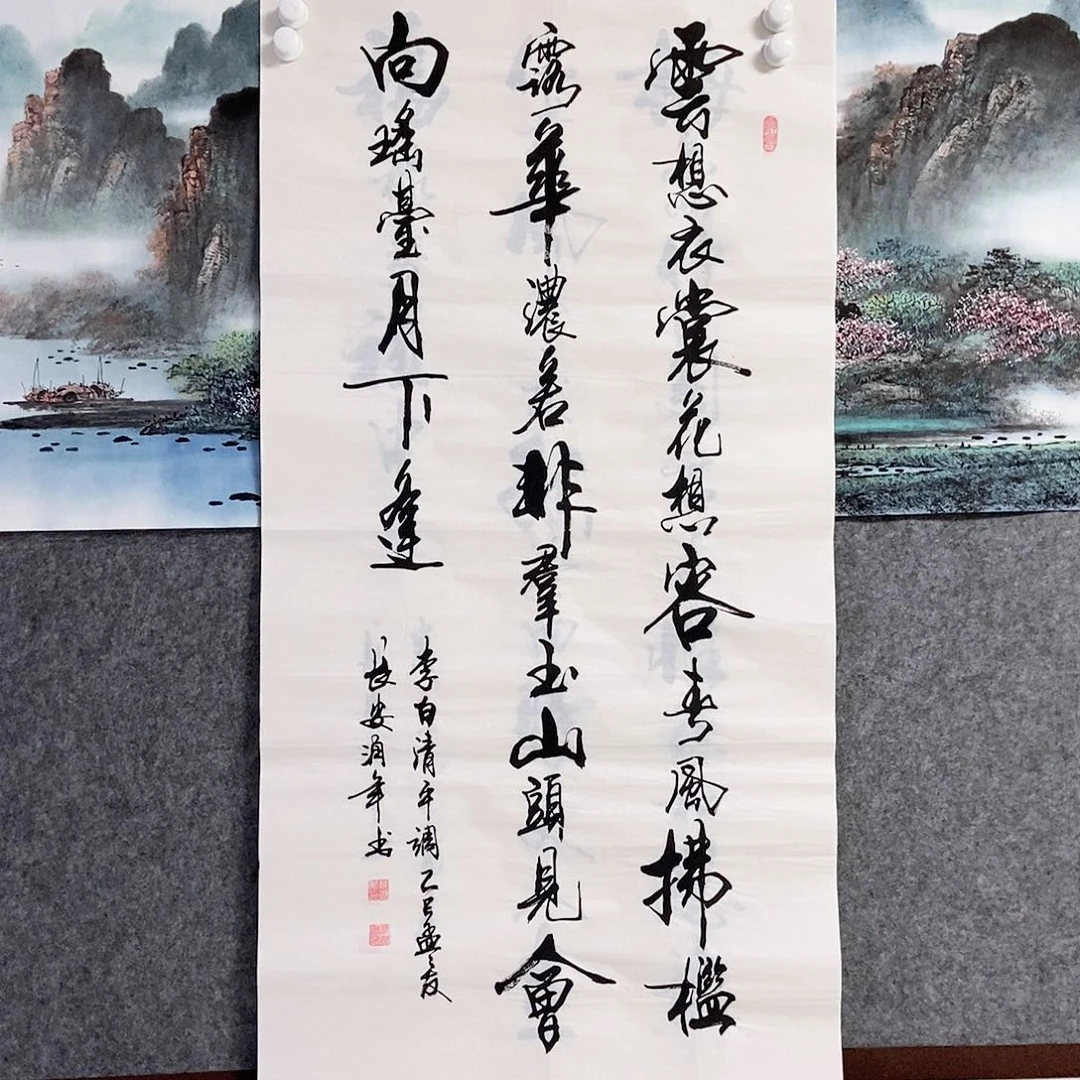 雲想衣裳花想容春風拂檻
露華濃若非羣玉山頭見會
向瑤臺月下逢
李白清平調乙巳孟夏
長安涌年书